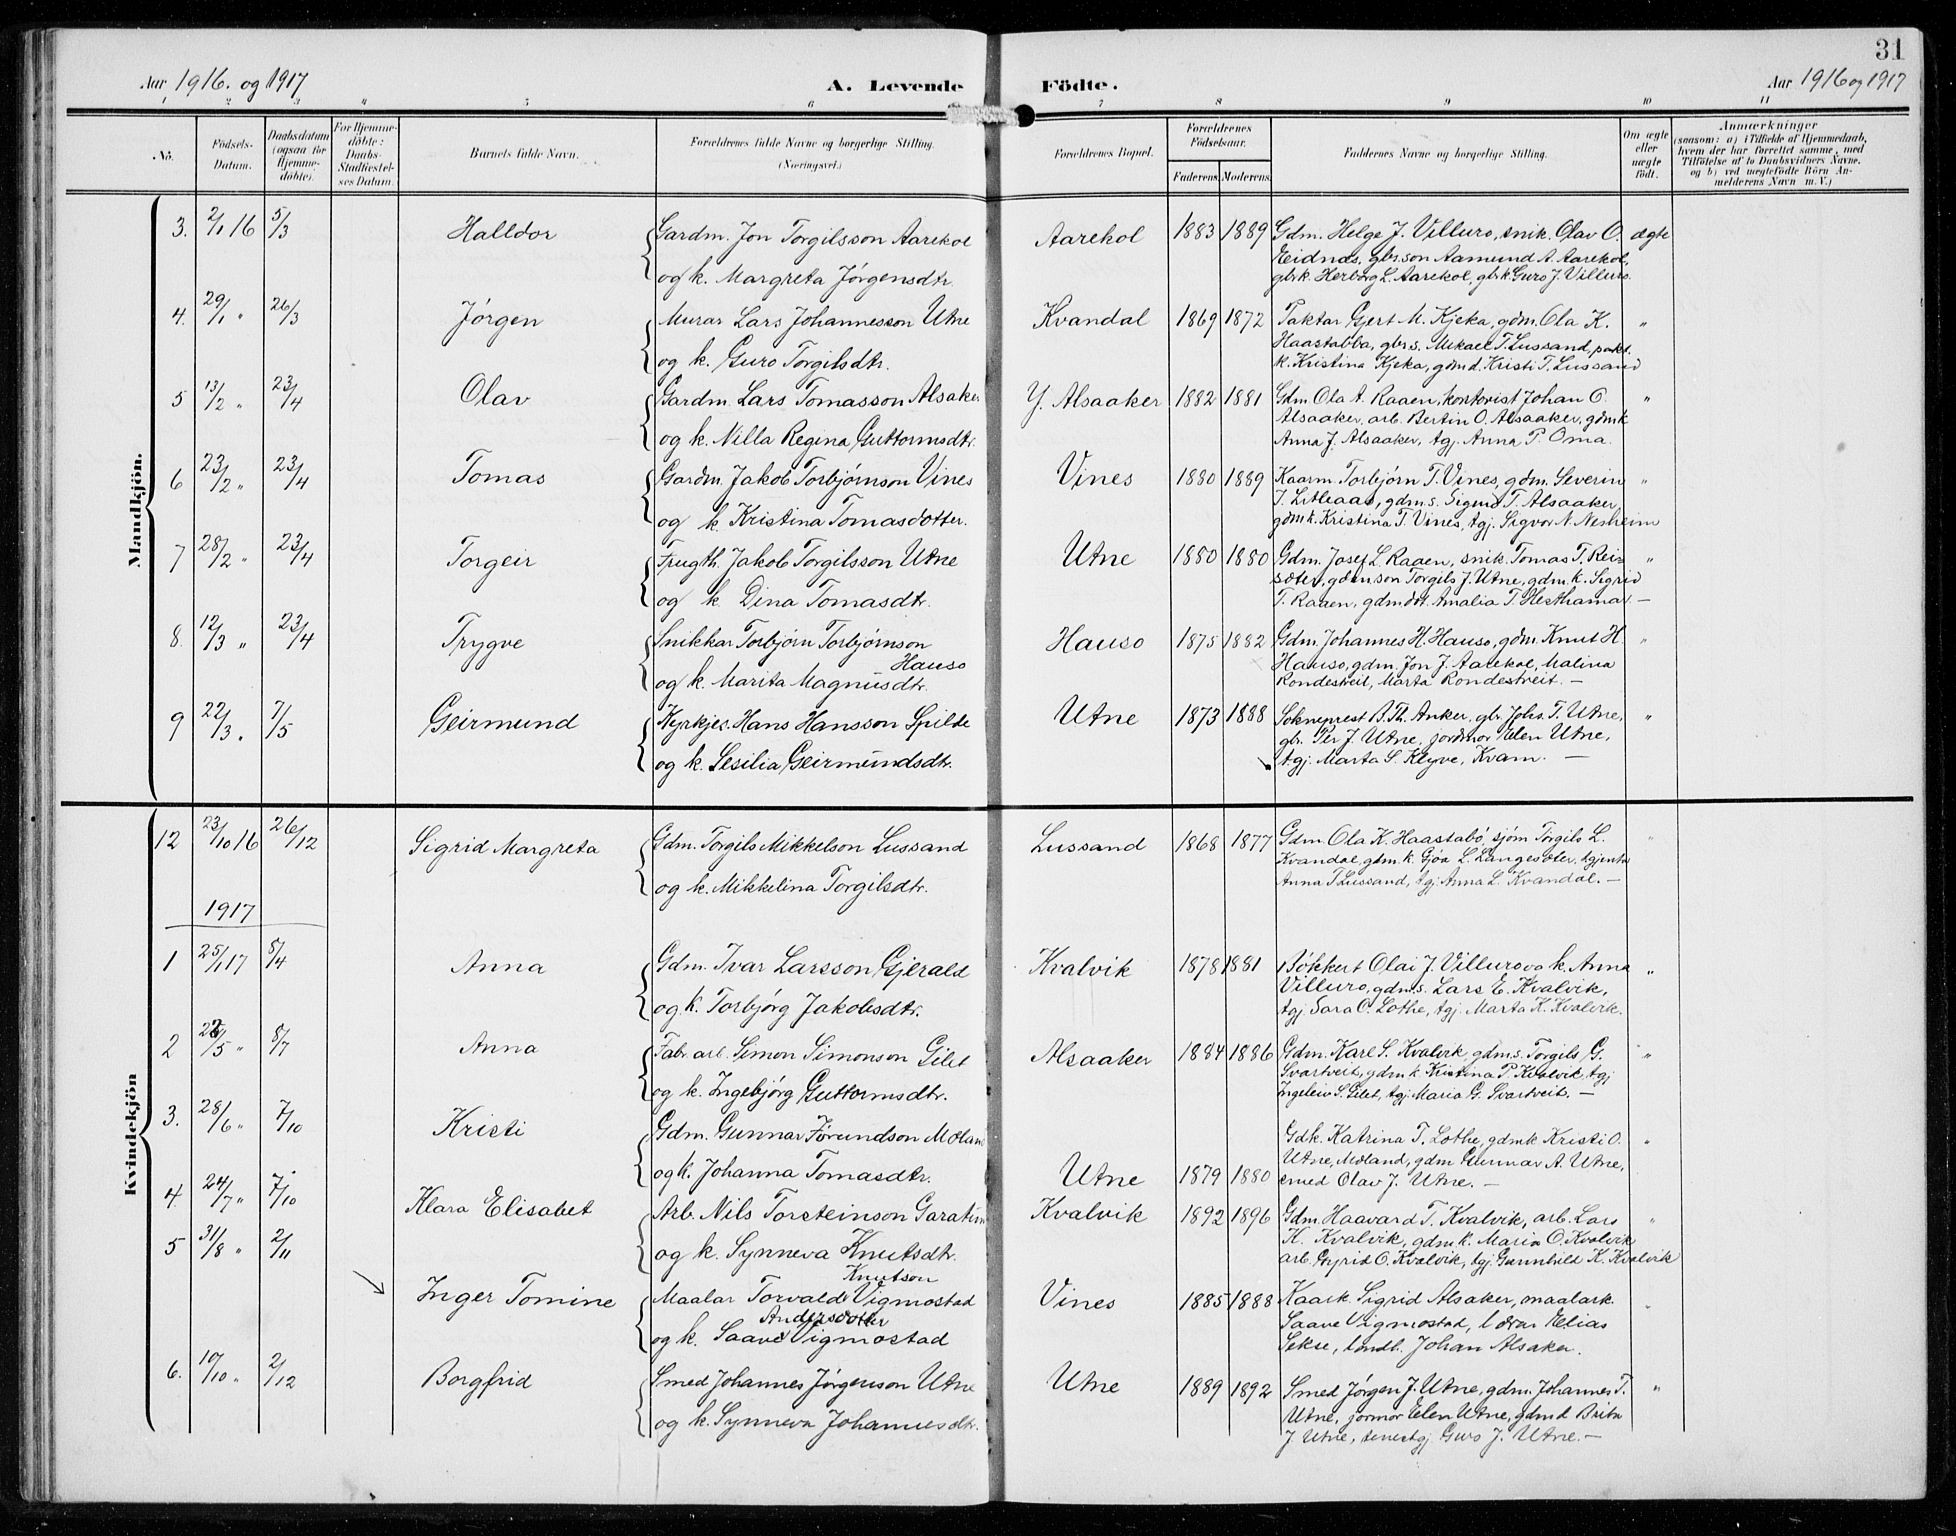 31
Aar 1916. og 1917 A. Levende Födte. Aar 1916 og 1917
1 2 3 4 5 6 7 8 9 10 11
No. Födsels-Datum. Daabsdatum (ogsaa for Hjemmedöbte). For Hjemmedöbte: Daabs-Stadfæstelses Datum Barnets fulde Navn. Forældrenes fulde Navne og borgerlige Stilling. (Næringsvei.) Forældrenes Bopæl. Forældrenes Födselsaar. Faderens Moderens Faddernes Navne og borgerlige Stilling. Om ægte eller uægte födt. Anmærkninger (saasom: a) i Tilfælde af Hjemmedaab, hvem der har forrettet samme, med Tilföielse af to Daabsvidners Navne. og b) ved uægtefödte Börn Anmelderens Navn m. V.)
Mandkjön.
3. 2/1 16 5/3 Halldor Gardm. Jon Torgilsson Aarekol Aarekol 1883 1889 Gdm. Helge J. Villuro, snik. Olav O. ægte
Eidnes, gbr.son Aamund A. Aarekol,
og k. Margreta Jørgensdtr. gbrk. Herborg L. Aarekol, gbrk Guro J. Villuro.
4. 29/1 " 26/3 Jørgen Murar Lars Johannesson Utne Kvandal 1869 1872 Taktar Gjert M. Kjeka, gdm. Ola K. "
Haastabba, gbr.s. Mikael T. Lussand, takt.
og k. Guro Torgilsdtr. k. Kristina Kjeka, gdmd. Kristi T. Lussand
5 13/2 " 23/4 Olav Gardm. Lars Tomasson Alsaker Y. Alsaaker 1882 1881 Gdm. Ola A. Raaen, kontorist Johan O. "
Alsaaker, arb. Bertin O. Alsaaker, gdmk
og k. Nilla Regina Guttormsdtr. Anna J. Alsaaker, tgj. Anna P. Oma.
6 23/2 " 23/4 Tomas Gardm. Jakob Torbjørnson Vines Vines 1880 1889 Kaarm Torbjørn T. Vines, gdm. Severin "
T. Litleaas, gdm.s. Sigurd T. Alsaaker,
og k. Kristina Tomasdotter. gdmk. Kristina T. Vines, tgj. Sigvor N. Nesheim
7 28/2 " 23/4 Torgeir Frugth. Jakob Torgilsson Utne Utne 1880 1880 Gdm. Josef L. Raaen, snik. Tomas T. Rei= "
sæter, gdmson Torgils J. Utne, gdm. k. Sigrid
og k. Dina Tomasdtr. T. Raaen, gdmdt. Amalia T. Hesthamar. —
8. 12/3 " 23/4 Trygve Snikkar Torbjørn Torbjørnson Hauso 1875 1882 Gdm. Johannes H. Hauso, gdm. Knut H. "
Hauso Hauso, gdm. Jon J. Aarekol, Malina
og k. Marita Magnusdtr. Rondestveit, Marta Rondestveit. —
9 22/3 " 7/5 Geirmund Kyrkjes. Hans Hansson Spilde Utne 1873 1888 Sokneprest B. Th. Anker, gbr. Johs. T. Utne, "
gbr. Per J. Utne, jordmor Elen Utne,
og k. Sesilia Geirmundsdtr. tgj. Marta S. Kleyve, Kvam. —
Kvindekjön
12 23/10 16 26/12 Sigrid Margreta Gdm. Torgils Mikkelson Lussand Lussand 1868 1877 Gdm. Ola K. Haastabø, sjøm Torgils L. "
Kvandal, gdm. k. Gjøa L. Langesæter, tgjenta
og k. Mikkelina Torgilsdtr. Anna T Lussand, tgj. Anna L. Kvandal. —
1917
1 25/1 17 8/4 Anna Gdm. Ivar Larsson Gjerald Kvalvik 1878 1881 Bøkkert Olai J. Villuro o k. Anna "
Villuro, gdm.s. Lars E. Kvalvik,
og k. Torbjørg Jakobsdtr. tgj. Sara O. Lothe, tgj. Marta K. Kvalvik.
2 /5 " 8/7 Anna Fabr. arb. Simon Simonson Eilet Alsaaker 1884 1886 Gdm. Karl S. Kvalvik, gdm.s. Torgils G. "
Svartveit, gdm k Kristina P. Kvalvik, tgj
og k. Ingebjørg Guttormsdtr. Ingeleiv S. Eilet, tgj. Maria G. Svartveit. —
3. 28/6 " 7/10 Kristi Gdm. Gunnar Jørundson Moland Gdk. Katrina T. Lothe, gdmk Kristi O. "
Utne, Moland, gdm Gunnar A. Utne,
og k. Johanna Tomasdtr. Utne 1879 1880 smed Olav J. Utne. —
4. 24/7 " 7/10 Klara Elisabet Arb. Nils Torsteinson Garatun Kvalvik 1892 1896 Gdm. Haavard T. Kvalvik, arb. Lars "
K. Kvalvik, gdmk. Maria O. Kvalvik
5 31/8 " 2/11 og k. Synneva Knutsdtr. arb. Gyrid O. Kvalvik, tgj. Gunnhild K. Kvalvik
Knutson
Inger Tomine Maalar Torvald Vigmostad Vines 1885 1888 Kaark. Sigrid Alsaker, maalark. "
Andersdotter Saave Vigmostad, lærar Elias
og k. Saave Vigmostad Sekse, landh. Johan Alsaker.
6. 10/10 " 2/12 Borgfrid Smed Johannes Jørgenson Utne Utne 1889 1892 Smed Jørgen J. Utne, gdm. Johannes T. "
Utne, jormor Elen Utne, gdmd Brita
og k. Synneva Johannesdtr. J Utne, tenestgj Guro J. Utne. —